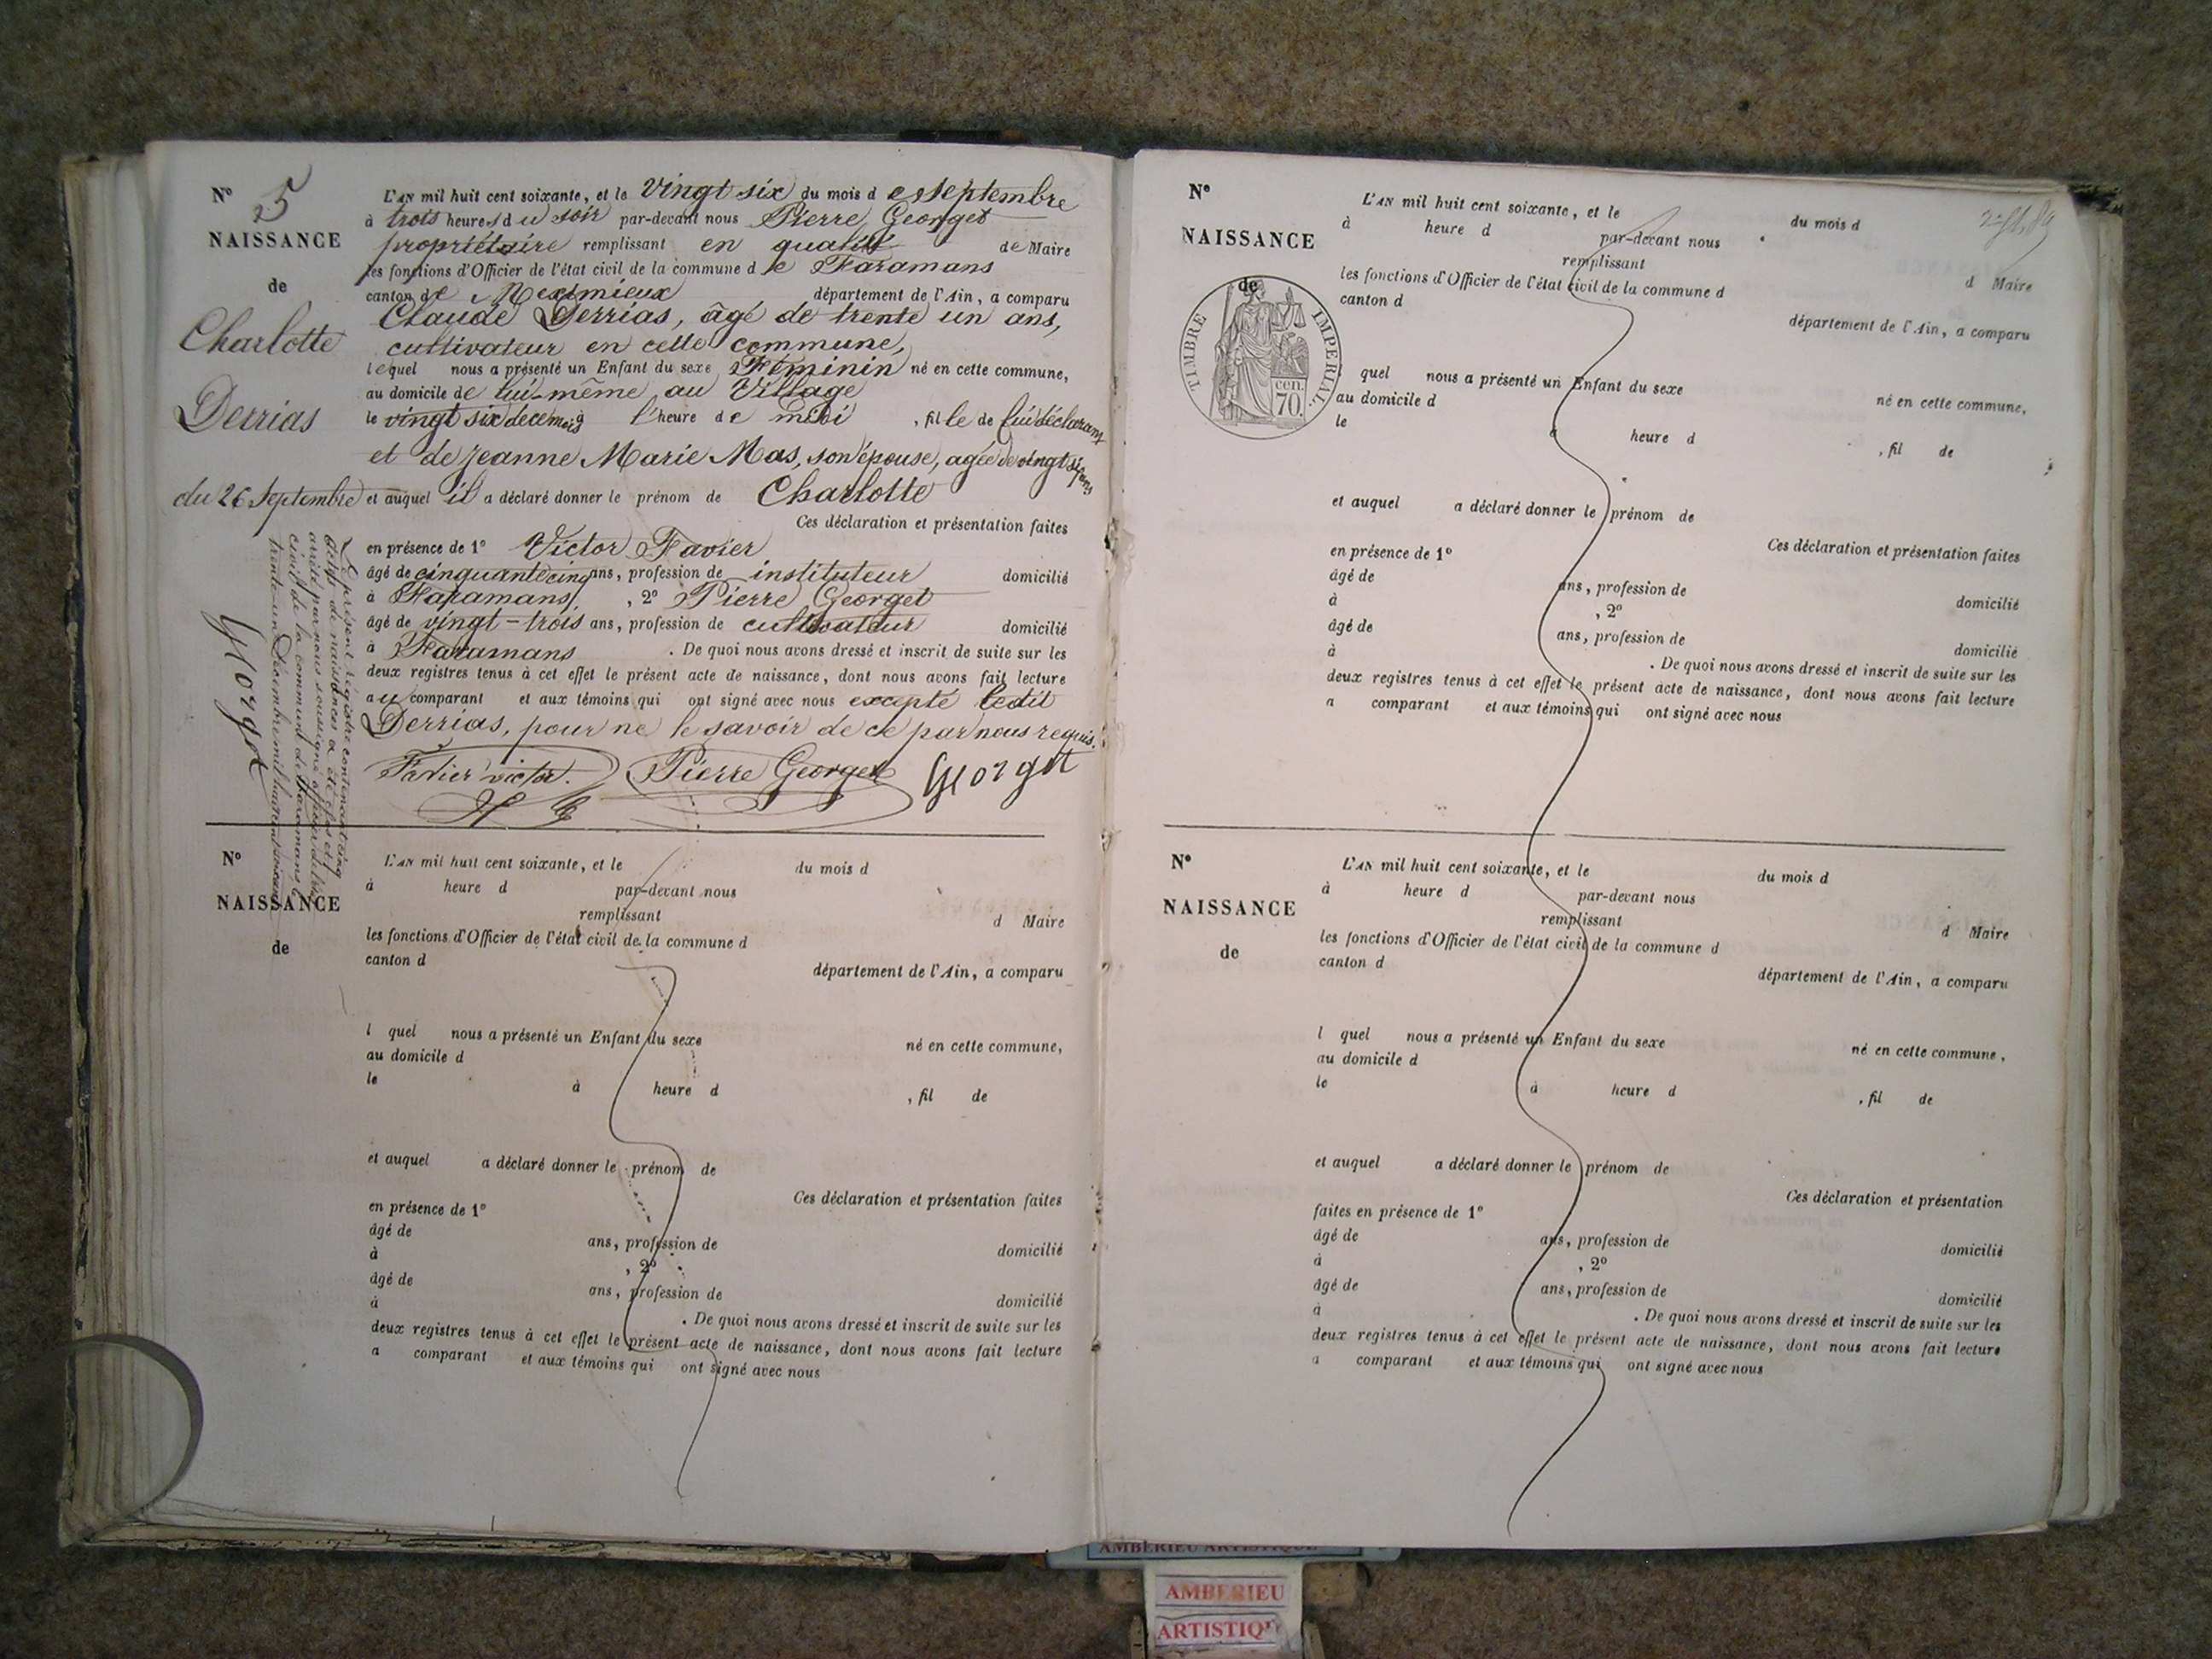 N° 5
NAISSANCE
de
Charlotte
Derrias
du 26 Septembre
L'AN mil huit cent soixante, et le vingt six du mois de Septembre
à trois heures du soir par-devant nous Pierre Georget
propriétaire remplissant en qualité de Maire
les fonctions d'Officier de l'état civil de la commune de Faramans
canton de Meximieux département de l'Ain, a comparu
Claude Derrias, âgé de trente un ans,
cultivateur en cette commune,
lequel nous a présenté un Enfant du sexe Féminin né en cette commune,
au domicile de lui-même au Village
le vingt six de ce mois à l'heure de midi, fille de lui déclarant
et de Jeanne Marie Mas, son épouse, agée de vingt six ans
et auquel il a déclaré donner le prénom de Charlotte
Ces déclaration et présentation faites
en présence de 1° Victor Favier
âgé de cinquante cinq ans, profession de instituteur domicilié
à Faramans, 2° Pierre Georget
âgé de vingt-trois ans, profession de cultivateur domicilié
à Faramans. De quoi nous avons dressé et inscrit de suite sur les
deux registres tenus à cet effet le présent acte de naissance, dont nous avons fait lecture
au comparant et aux témoins qui ont signé avec nous excepté ledit
Derrias, pour ne le savoir de ce par nous requis.
Favier victor. Pierre Georget Georget
Le présent registre contenant cinq
actes de naissances a été clos et
arrêté par nous soussigné officier de l'état
civil de la commune de Faramans le
trente-un Décembre mil huit cent soixante
Georget
N°
NAISSANCE
de
L'AN mil huit cent soixante, et le du mois d
à heure d par-devant nous
remplissant d Maire
les fonctions d'Officier de l'état civil de la commune d
canton d département de l'Ain, a comparu
l quel nous a présenté un Enfant du sexe né en cette commune,
au domicile d
le à heure d , fil de
et auquel a déclaré donner le prénom de
Ces déclaration et présentation faites
en présence de 1°
âgé de ans, profession de domicilié
à , 2°
âgé de ans, profession de domicilié
à . De quoi nous avons dressé et inscrit de suite sur les
deux registres tenus à cet effet le présent acte de naissance, dont nous avons fait lecture
a comparant et aux témoins qui ont signé avec nous
N°
NAISSANCE
de
TIMBRE IMPERIAL
cen.
70.
L'AN mil huit cent soixante, et le du mois d
à heure d par-devant nous
remplissant d Maire
les fonctions d'Officier de l'état civil de la commune d
canton d département de l'Ain, a comparu
quel nous a présenté un Enfant du sexe né en cette commune,
au domicile d
le à heure d , fil de
et auquel a déclaré donner le prénom de
Ces déclaration et présentation faites
en présence de 1°
âgé de ans, profession de domicilié
à , 2°
âgé de ans, profession de domicilié
à . De quoi nous avons dressé et inscrit de suite sur les
deux registres tenus à cet effet le présent acte de naissance, dont nous avons fait lecture
a comparant et aux témoins qui ont signé avec nous
N°
NAISSANCE
de
L'AN mil huit cent soixante, et le du mois d
à heure d par-devant nous
remplissant d Maire
les fonctions d'Officier de l'état civil de la commune d
canton d département de l'Ain, a comparu
l quel nous a présenté un Enfant du sexe né en cette commune,
au domicile d
le à heure d , fil de
et auquel a déclaré donner le prénom de
Ces déclaration et présentation
faites en présence de 1°
âgé de ans, profession de domicilié
à , 2°
âgé de ans, profession de domicilié
à . De quoi nous avons dressé et inscrit de suite sur les
deux registres tenus à cet effet le présent acte de naissance, dont nous avons fait lecture
a comparant et aux témoins qui ont signé avec nous
AMBERIEU ARTISTIQUE
AMBERIEU
ARTISTIQU